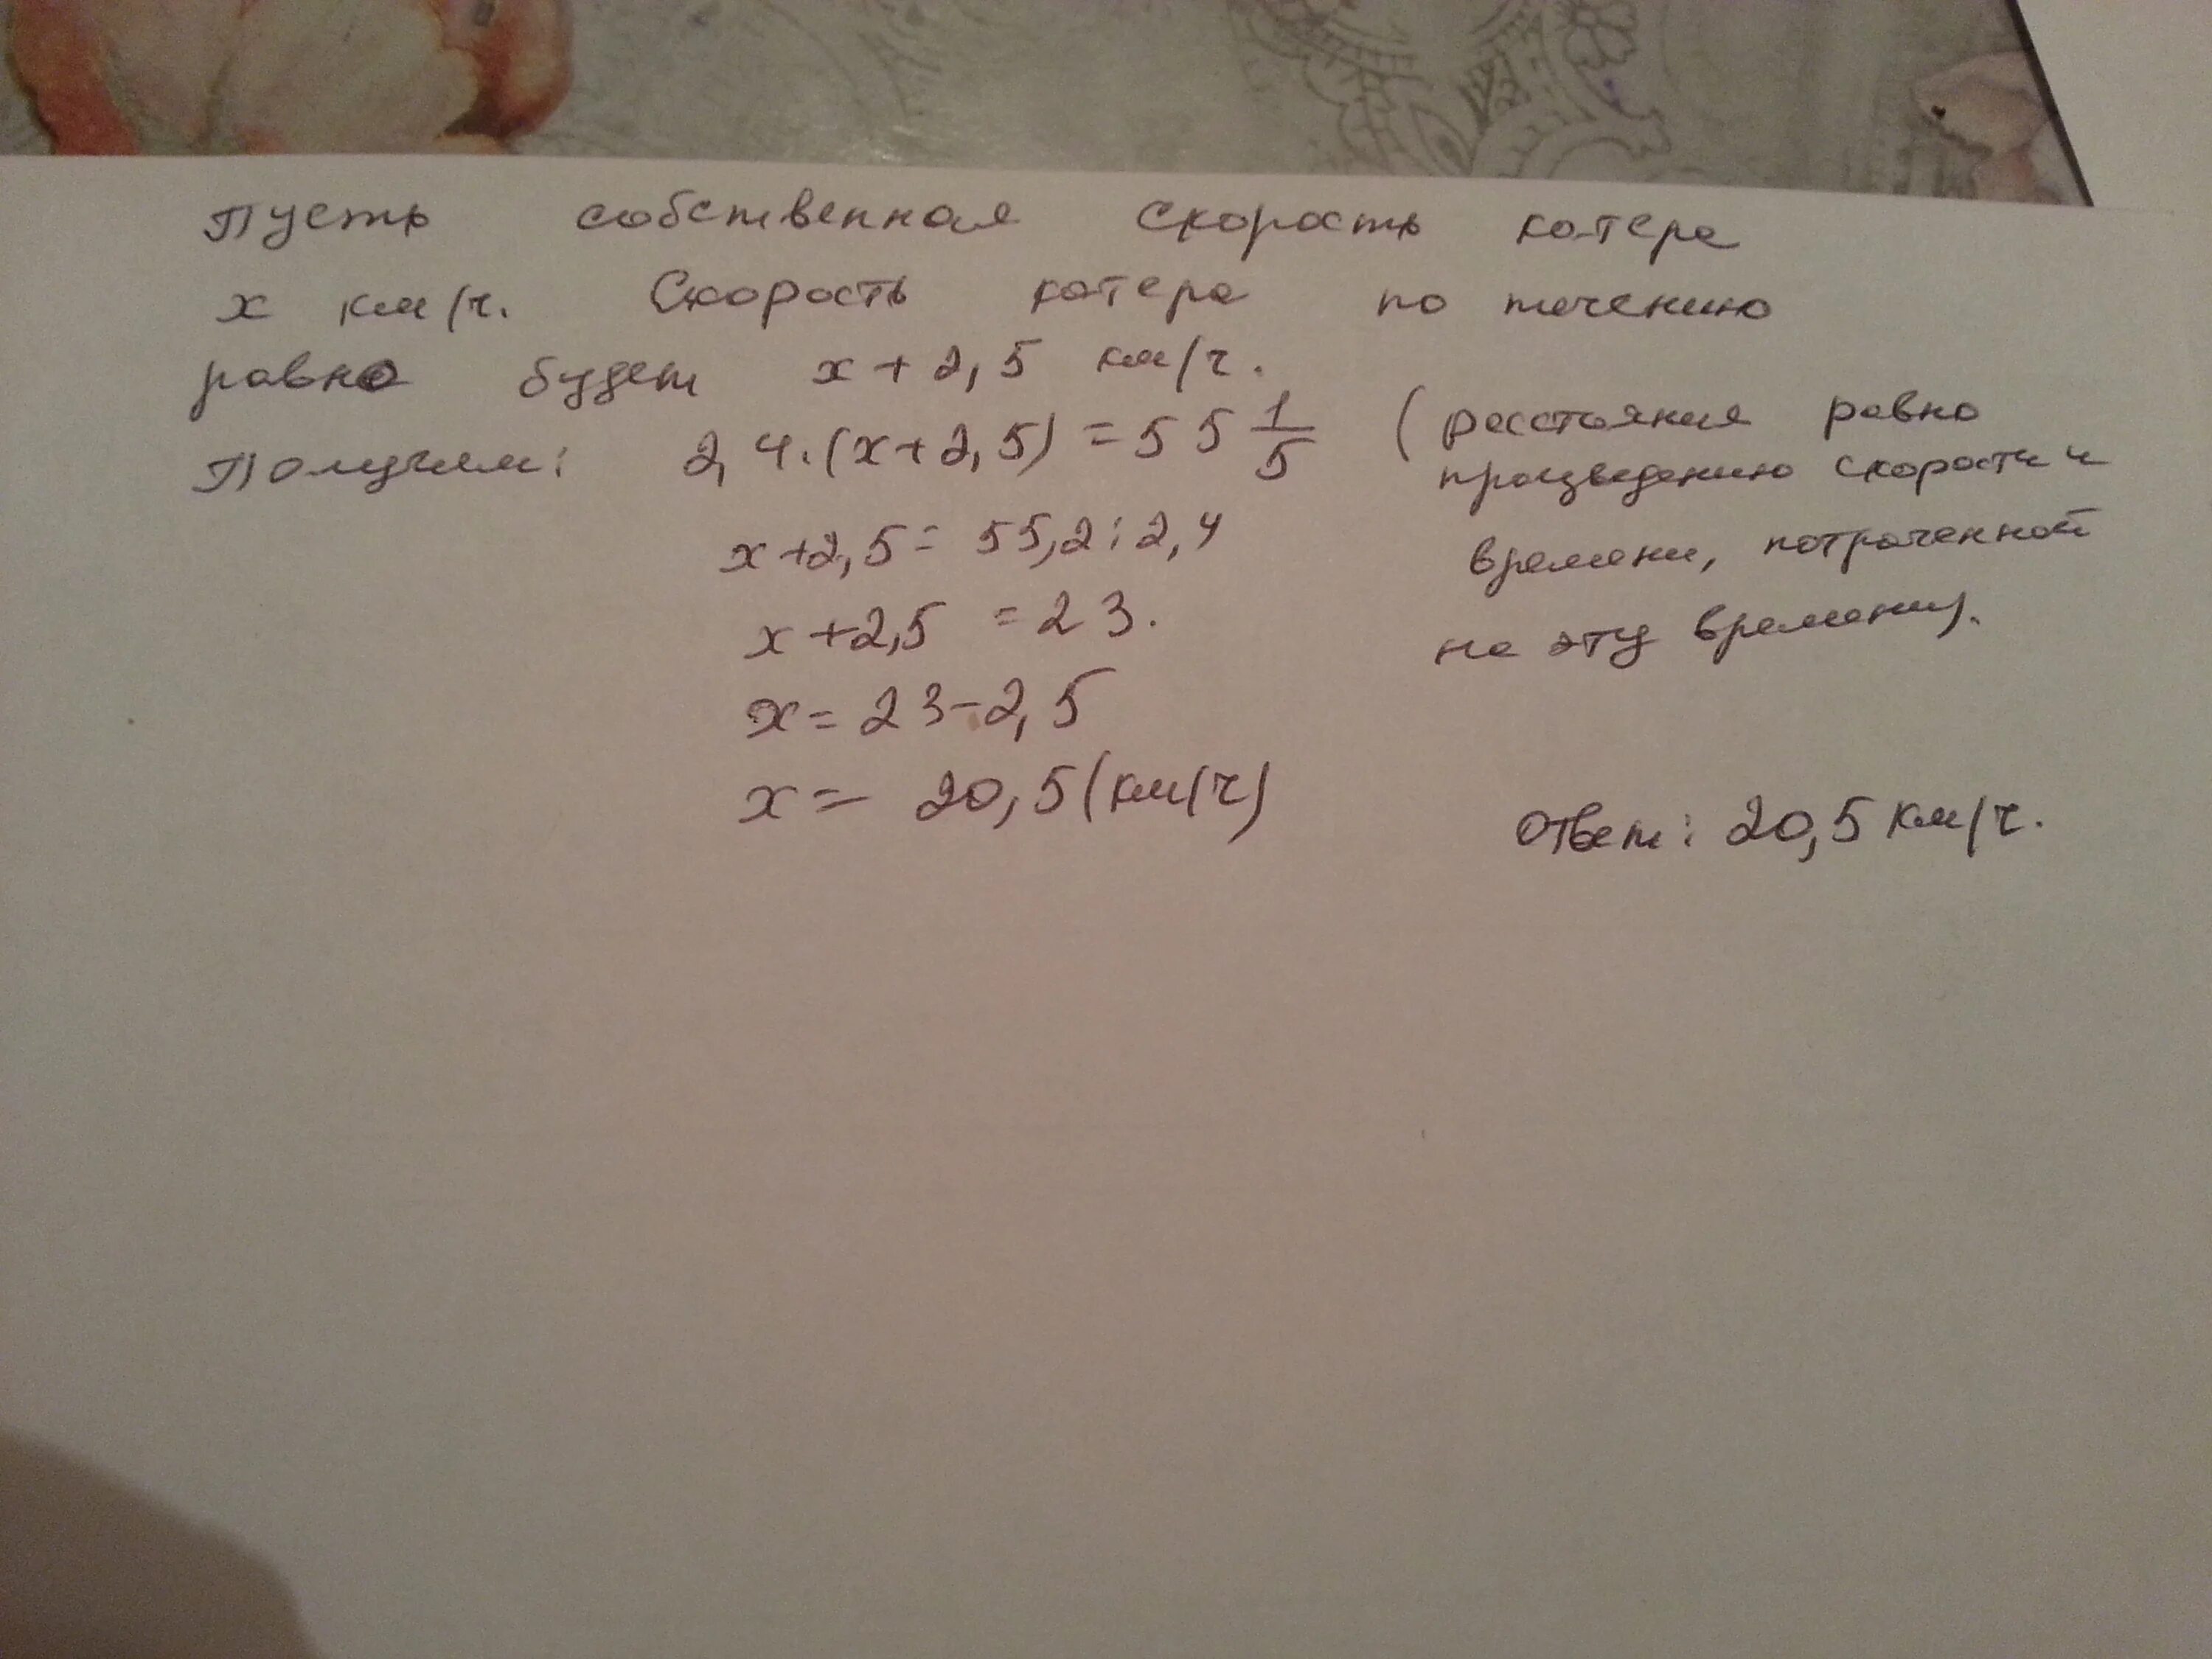 Пусть собственная скорость катера
x км/ч. Скорость катера по течению
равно будет x + 2,5 км/ч.
Получим: 2,4·(x+2,5) = 55 1/5 (расстояния равно
произведению скорости и
x+2,5 = 55,2 : 2,4
времени, потраченной
x+2,5 = 23.
на эту времени).
x = 23-2,5
x = 20,5 (км/ч)
Ответ: 20,5 км/ч.